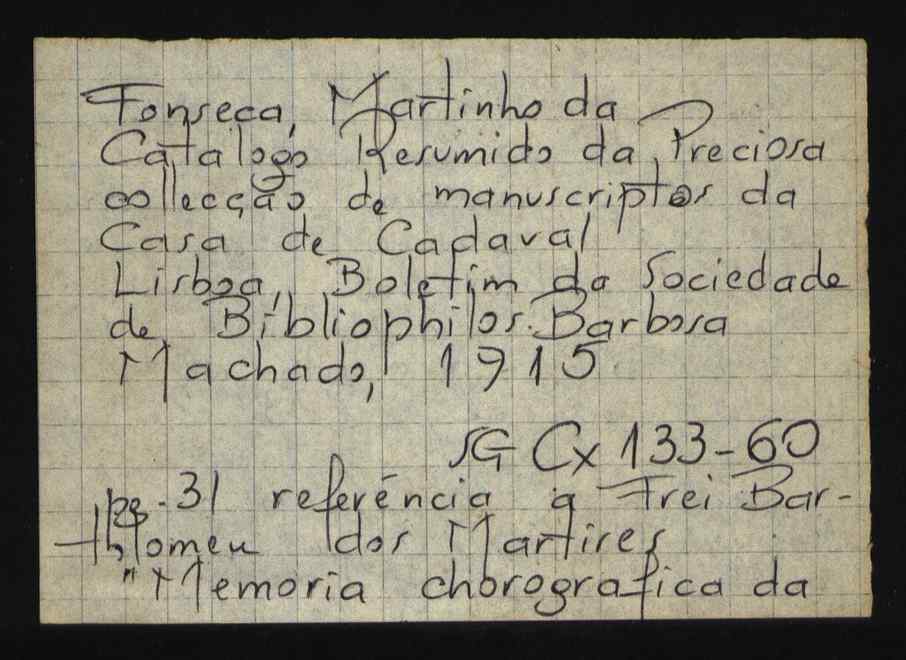 Fonseca, Martinho da
Catálogo Resumido da Preciosa
collecção de manuscriptos da
Casa de Cadaval
Lisboa, Boletim da Sociedade
de Bibliophilos Barbosa
Machado, 1915
SG Cx 133-60
pg. 31 referência a Frei Bar-
tholomeu dos Martires
"Memoria chorografica da